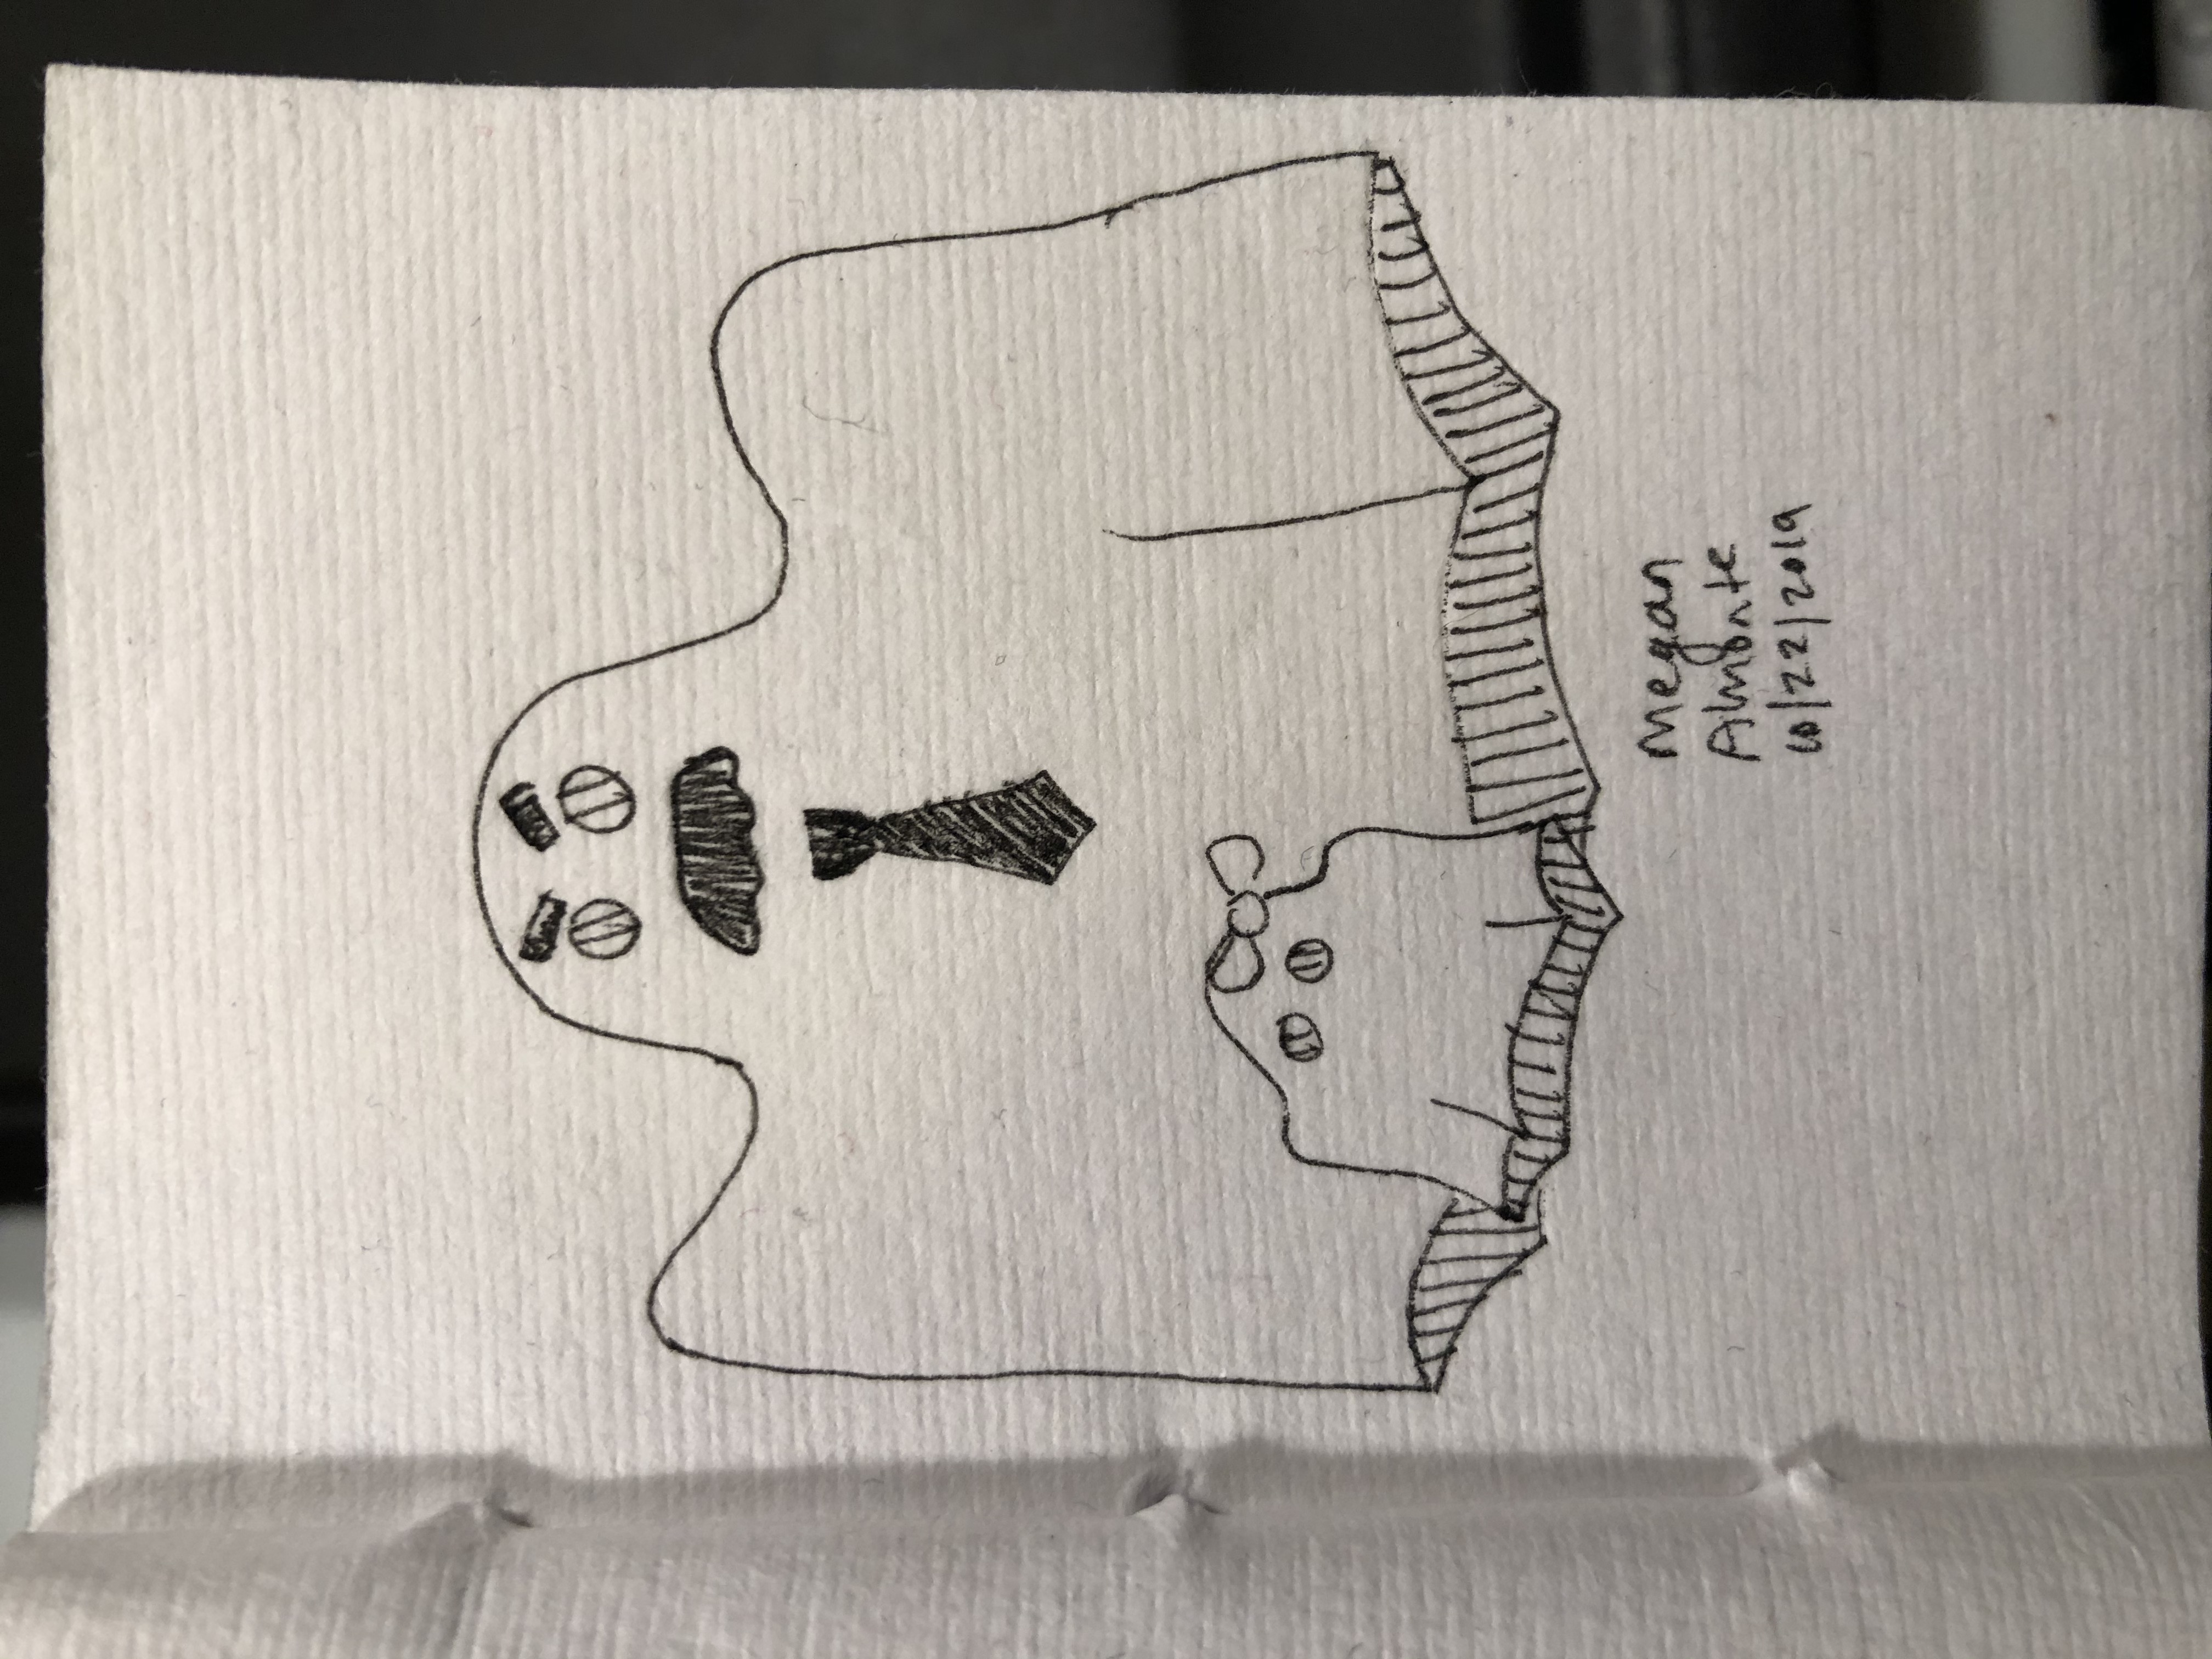 Megan
Almonte
10/22/2019